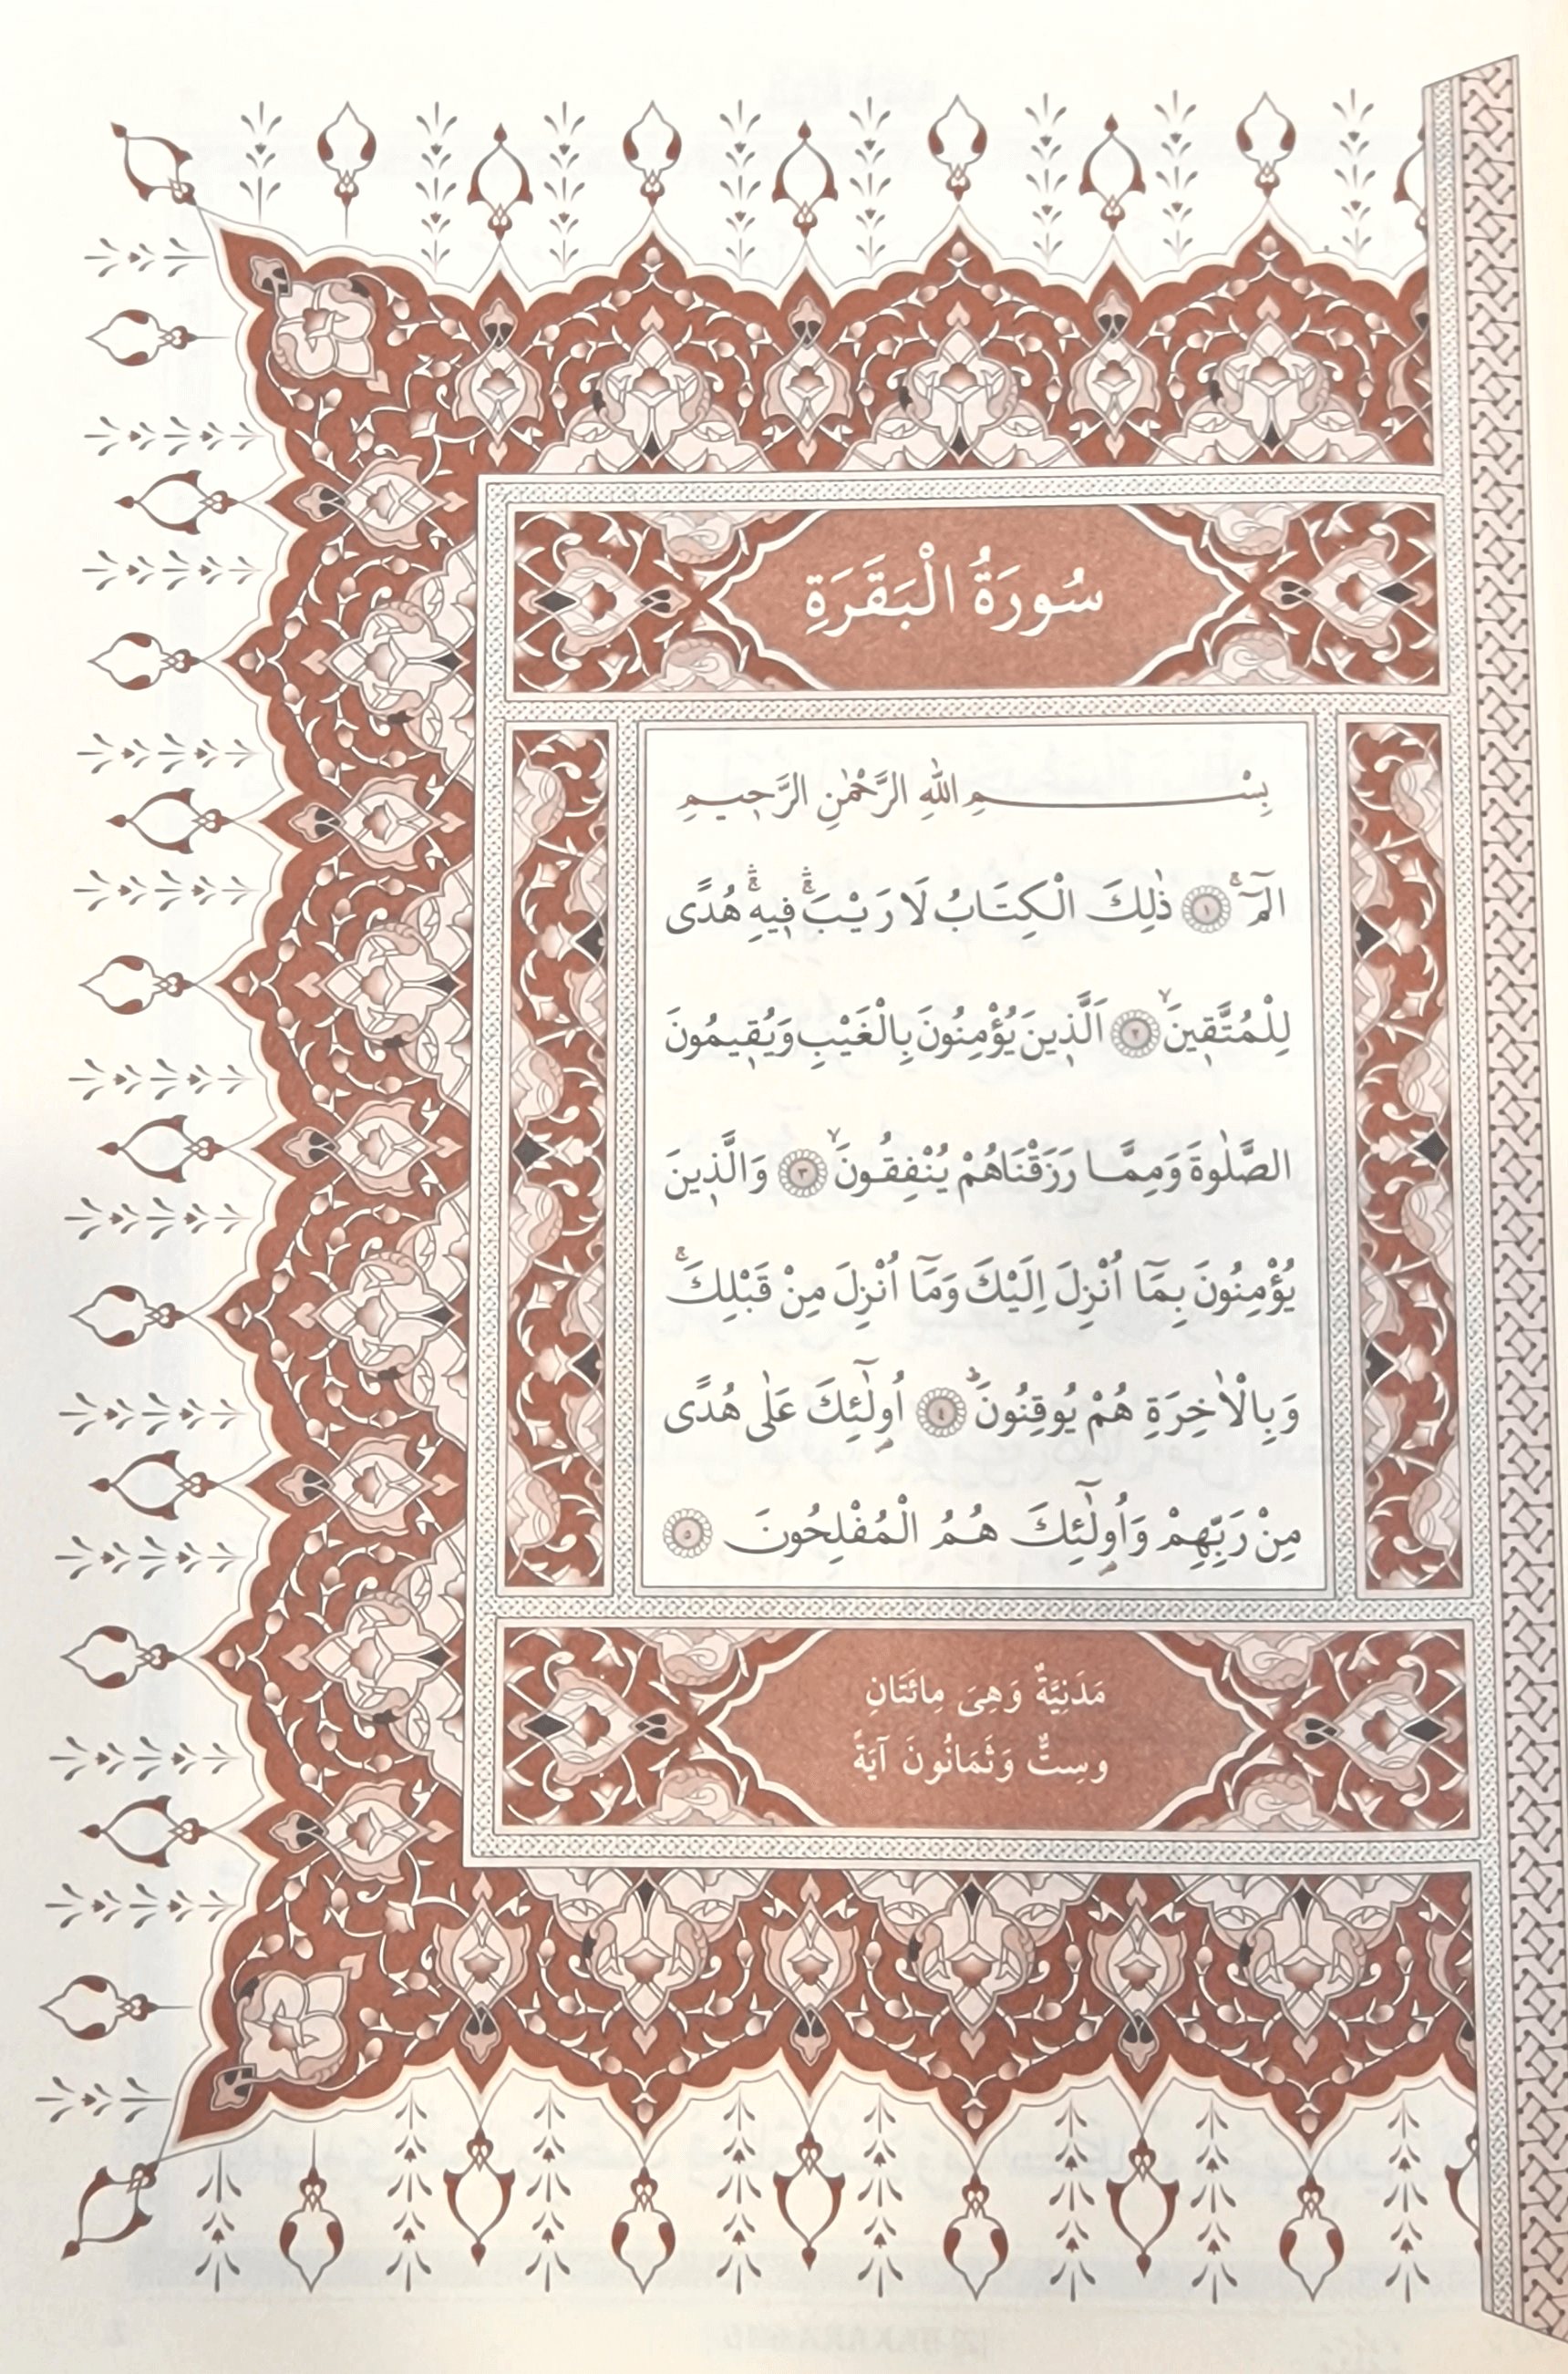 سُورَةُ الْبَقَرَةِ
بِسْمِ اللّٰهِ الرَّحْمٰنِ الرَّحٖيمِ
الٓمٓ ۚ ﴿١﴾ ذٰلِكَ الْكِتَابُ لَا رَيْبَ ۚۛ فٖيهِ ۚۛ هُدًى
لِلْمُتَّقٖينَ ۙ ﴿٢﴾ اَلَّذٖينَ يُؤْمِنُونَ بِالْغَيْبِ وَيُقٖيمُونَ
الصَّلٰوةَ وَمِمَّا رَزَقْنَاهُمْ يُنْفِقُونَ ۙ ﴿٣﴾ وَالَّذٖينَ
يُؤْمِنُونَ بِمَٓا اُنْزِلَ اِلَيْكَ وَمَٓا اُنْزِلَ مِنْ قَبْلِكَ ۚ
وَبِالْاٰخِرَةِ هُمْ يُوقِنُونَ ؕ ﴿٤﴾ اُو۬لٰٓئِكَ عَلٰى هُدًى
مِنْ رَبِّهِمْ وَاُو۬لٰٓئِكَ هُمُ الْمُفْلِحُونَ ﴿٥﴾
مَدَنِيَّةٌ وَهِىَ مِائَتَانِ
وسِتٌّ وَثَمَانُونَ آيَةً